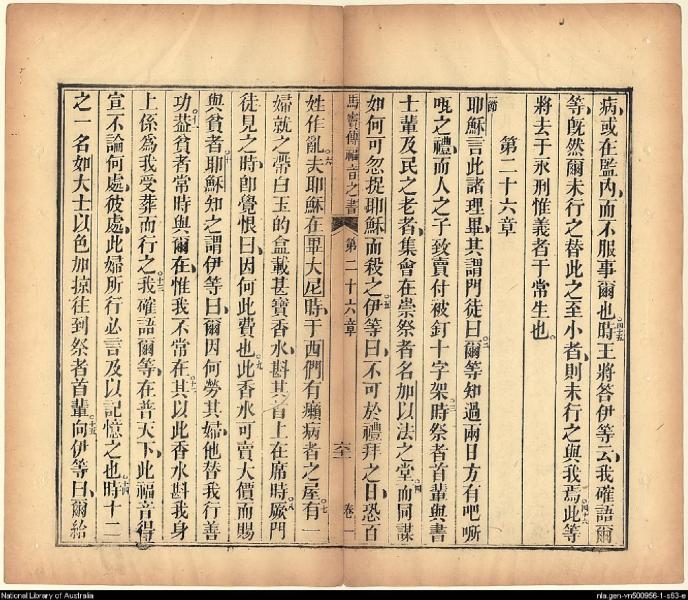 病或在監內而不服事爾也四十五時王將答伊等云我確語爾
等既然爾未行之替此之至小者則未行之與我焉四十六此等
將去于永刑惟義者于常生也
第二十六章
一節耶穌言此諸理畢其謂門徒曰二爾等知過兩日方有吧㗭
咓之禮而人之子致賣付被釘十字架三時祭者首輩與書
士輩及民之老者集會在崇祭者名加以法之堂四而同謀
如何可忽捉耶穌而殺之五伊等曰不可於禮拜之日恐百
馬竇傳福音之書 第二十六章 卷一
姓作亂六夫耶穌在畢大尼時于西們有癩病者之屋七有一
婦就之帶白玉的盒載甚寶香水斟其首上在席時八厥門
徒見之時即覺恨曰因何此費也九此香水可賣大價而賜
與貧者十耶穌知之謂伊等曰爾因何勞其婦他替我行善
功十一蓋貧者常時與爾在惟我不常在十二其以此香水斟我身
上係為我受葬而行之十三我確語爾等在普天下此福音得
宣不論何處彼處此婦所行必言及以記憶之也十四時十二
之一名如大士以色加掠往到祭者首輩十五向伊等曰爾給
National Library of Australia
nla.gen-vn500956-1-s63-e